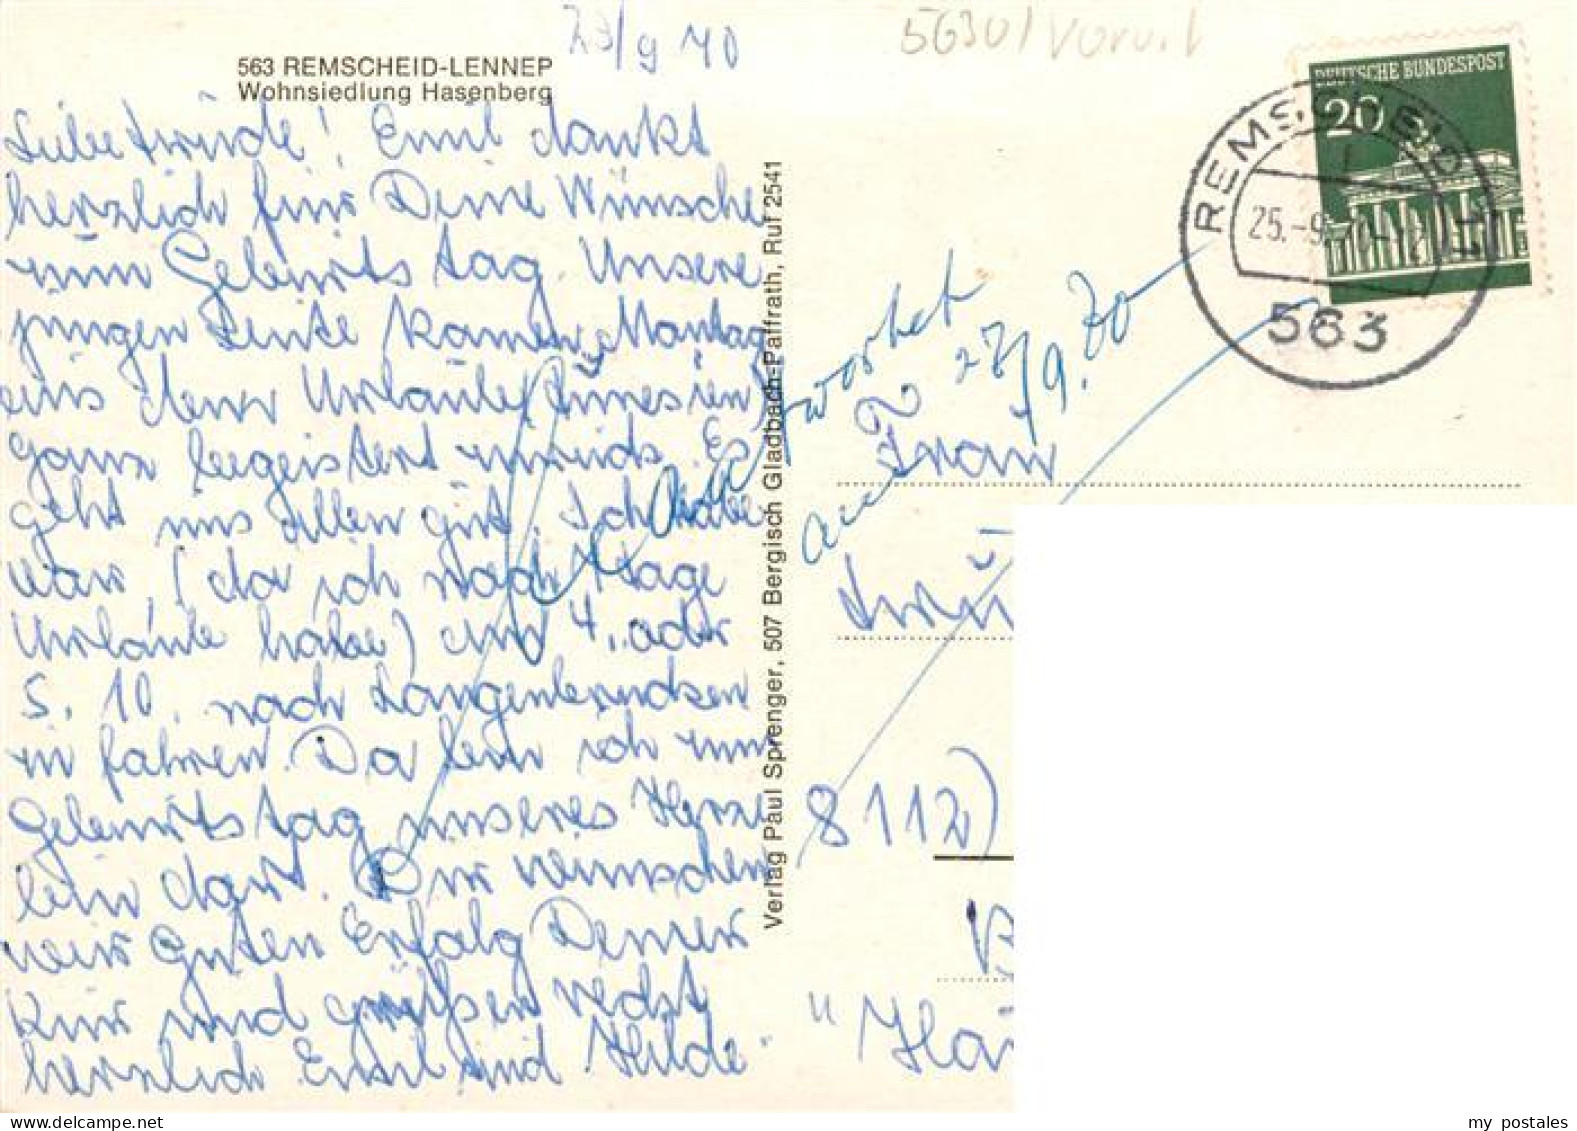 23/9 70
5630/
563 REMSCHEID-LENNEP
Wohnsiedlung Hasenberg
DEUTSCHE BUNDESPOST
20
REMSCHEID 11
25.-9.
563
Liebe Trude! Emil dankt
herzlich für Deine Wünsche
zum Geburtstag. Unsere
jungen Leute kamen Montag
aus dem Urlaub (Tunesien)
ganz begeistert zurück. Es
geht uns allen gut. Ich habe
vor, (da ich noch Tage
Urlaub habe) am 4. oder
5. 10. nach
zu fahren. Da bin ich zum
Geburtstag unseres Herze
lein dort. Dir wünschen
wir guten Erfolg Deiner
Kur und grüßen recht
herzlich Emil und Hilde
Verlag Paul Sprenger, 507 Bergisch Gladbach-Paffrath, Ruf 2541
beantwortet
27/9.70
Frau
8112)
my postales